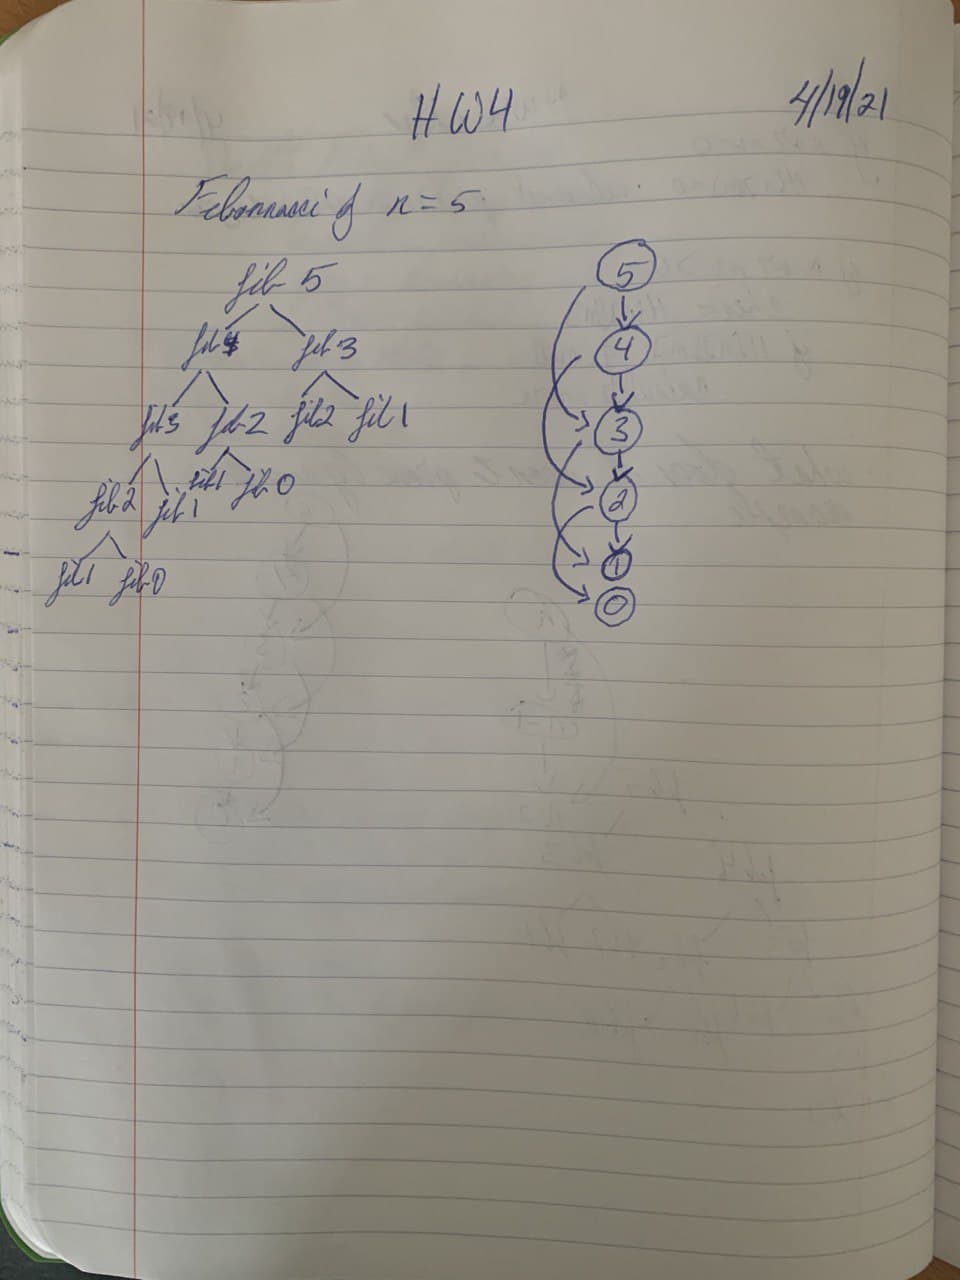 HW4 4/19/21
Fibonnacci of n = 5
fib 5
fib 4 fib 3
fib 3 fib 2 fib 2 fib 1
fib 2 fib 1 fib 1 fib 0
fib 1 fib 0
5
4
3
2
1
0